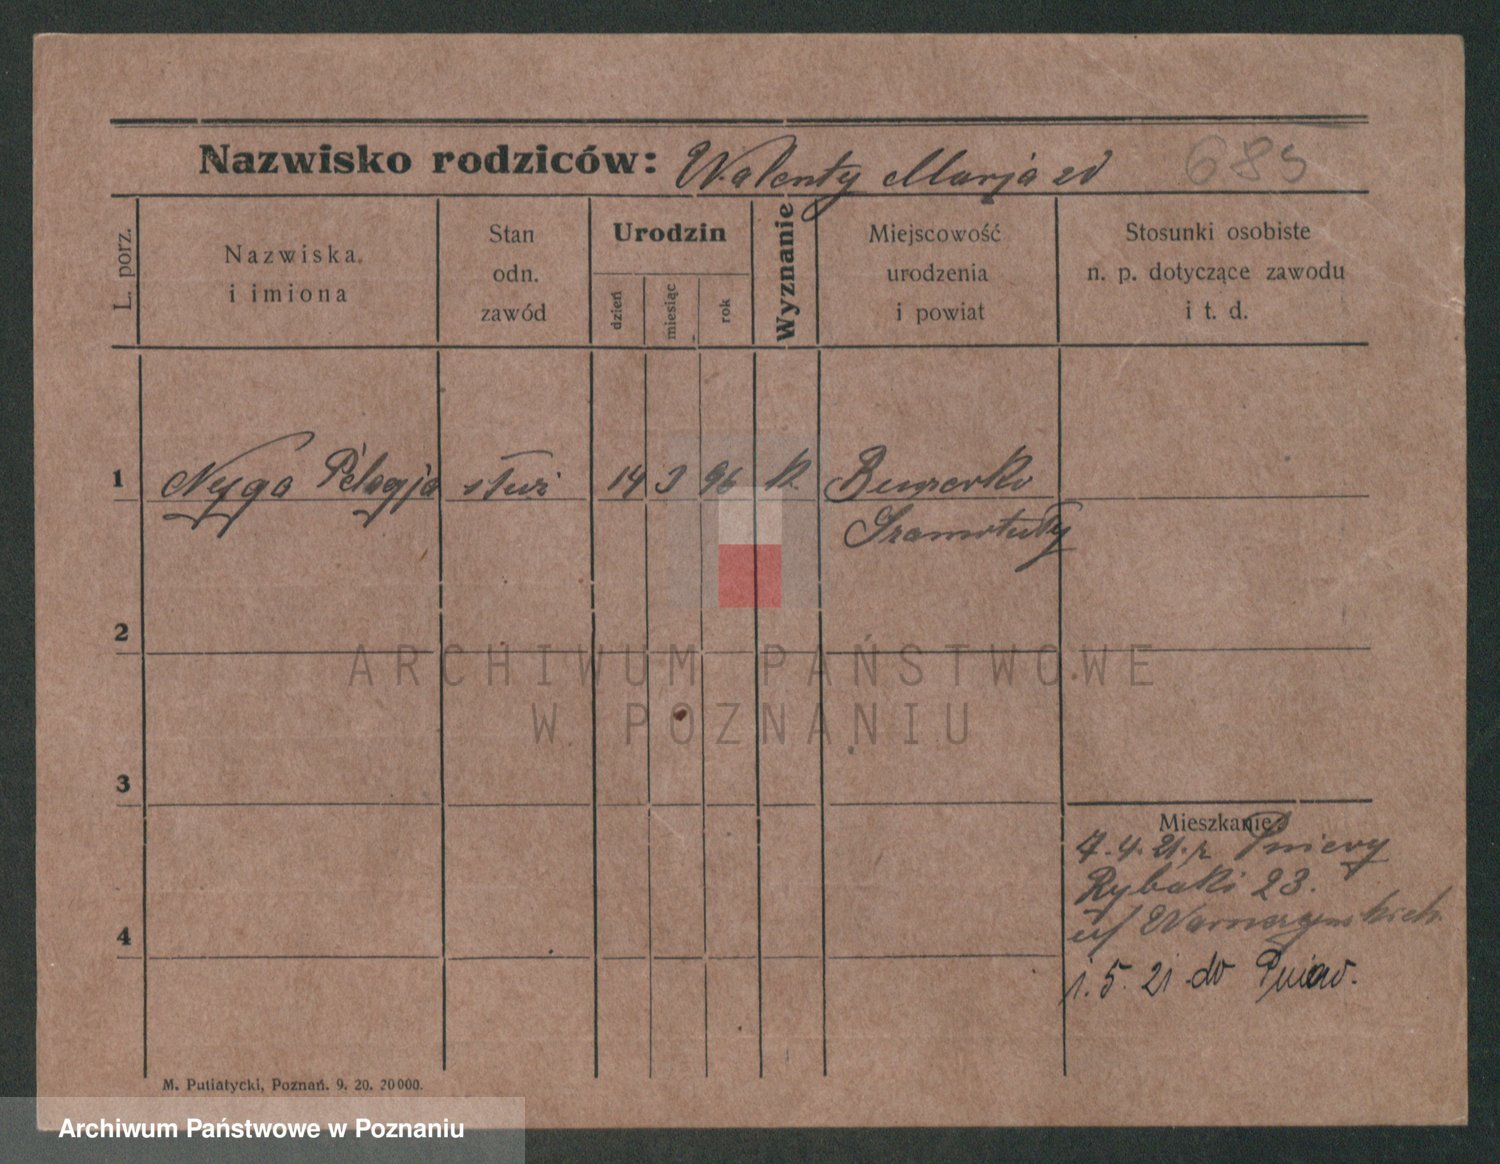 Nazwisko rodziców: Walenty Marja zd
685
L. porz.
Nazwiska i imiona
Stan odn. zawód
Urodzin
dzień
miesiąc
rok
Wyznanie
Miejscowość urodzenia i powiat
Stosunki osobiste n. p. dotyczące zawodu i t. d.
1 Nyga Pelagja służ 14 3 96 k.
Szamotuły
2
3
4
Mieszkanie:
7.4.21. z Pniewy
Rybaki 23.
1.5.21 do Pniew.
M. Putiatycki, Poznań. 9. 20. 20000.
ARCHIWUM PAŃSTWOWE
W POZNANIU
Archiwum Państwowe w Poznaniu